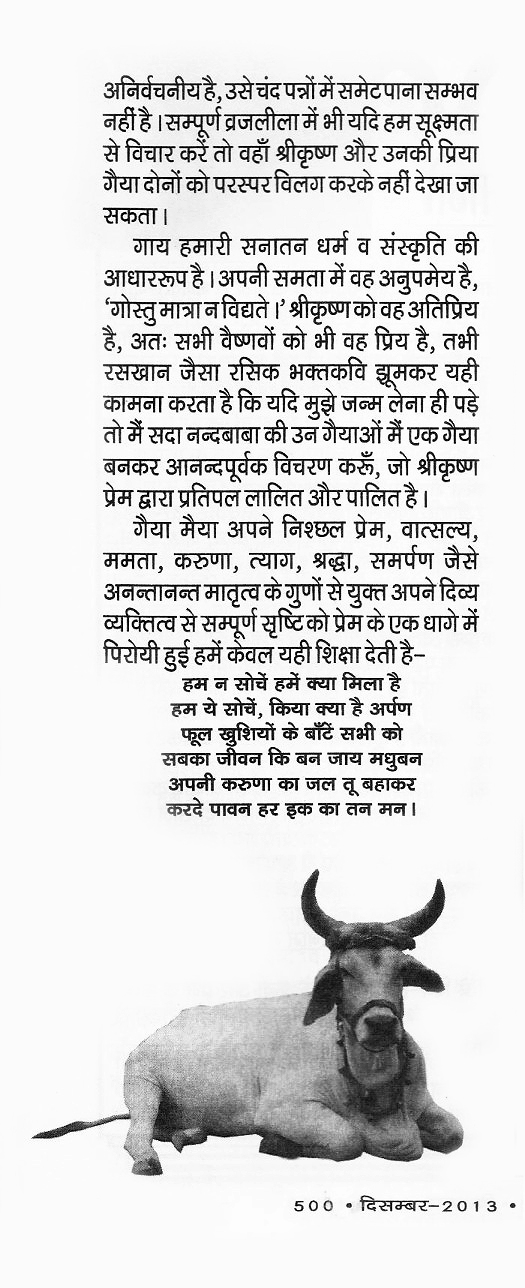 अनिर्वचनीय है, उसे चंद पन्नों में समेट पाना सम्भव
नहीं है । सम्पूर्ण व्रजलीला में भी यदि हम सूक्ष्मता
से विचार करें तो वहाँ श्रीकृष्ण और उनकी प्रिया
गैया दोनों को परस्पर विलग करके नहीं देखा जा
सकता ।
गाय हमारी सनातन धर्म व संस्कृति की
आधाररूप है । अपनी समता में वह अनुपमेय है,
‘गोस्तु मात्रा न विद्यते ।’ श्रीकृष्ण को वह अतिप्रिय
है, अतः सभी वैष्णवों को भी वह प्रिय है, तभी
रसखान जैसा रसिक भक्तकवि झूमकर यही
कामना करता है कि यदि मुझे जन्म लेना ही पड़े
तो मैं सदा नन्दबाबा की उन गैयाओं मैं एक गैया
बनकर आनन्दपूर्वक विचरण करूँ, जो श्रीकृष्ण
प्रेम द्वारा प्रतिपल लालित और पालित है ।
गैया मैया अपने निश्छल प्रेम, वात्सल्य,
ममता, करुणा, त्याग, श्रद्धा, समर्पण जैसे
अनन्तानन्त मातृत्व के गुणों से युक्त अपने दिव्य
व्यक्तित्व से सम्पूर्ण सृष्टि को प्रेम के एक धागे में
पिरोयी हुई हमें केवल यही शिक्षा देती है–
हम न सोचें हमें क्या मिला है
हम ये सोचें, किया क्या है अर्पण
फूल खुशियों के बाँटें सभी को
सबका जीवन कि बन जाय मधुबन
अपनी करुणा का जल तू बहाकर
करदे पावन हर इक का तन मन ।
500 • दिसम्बर–2013 •